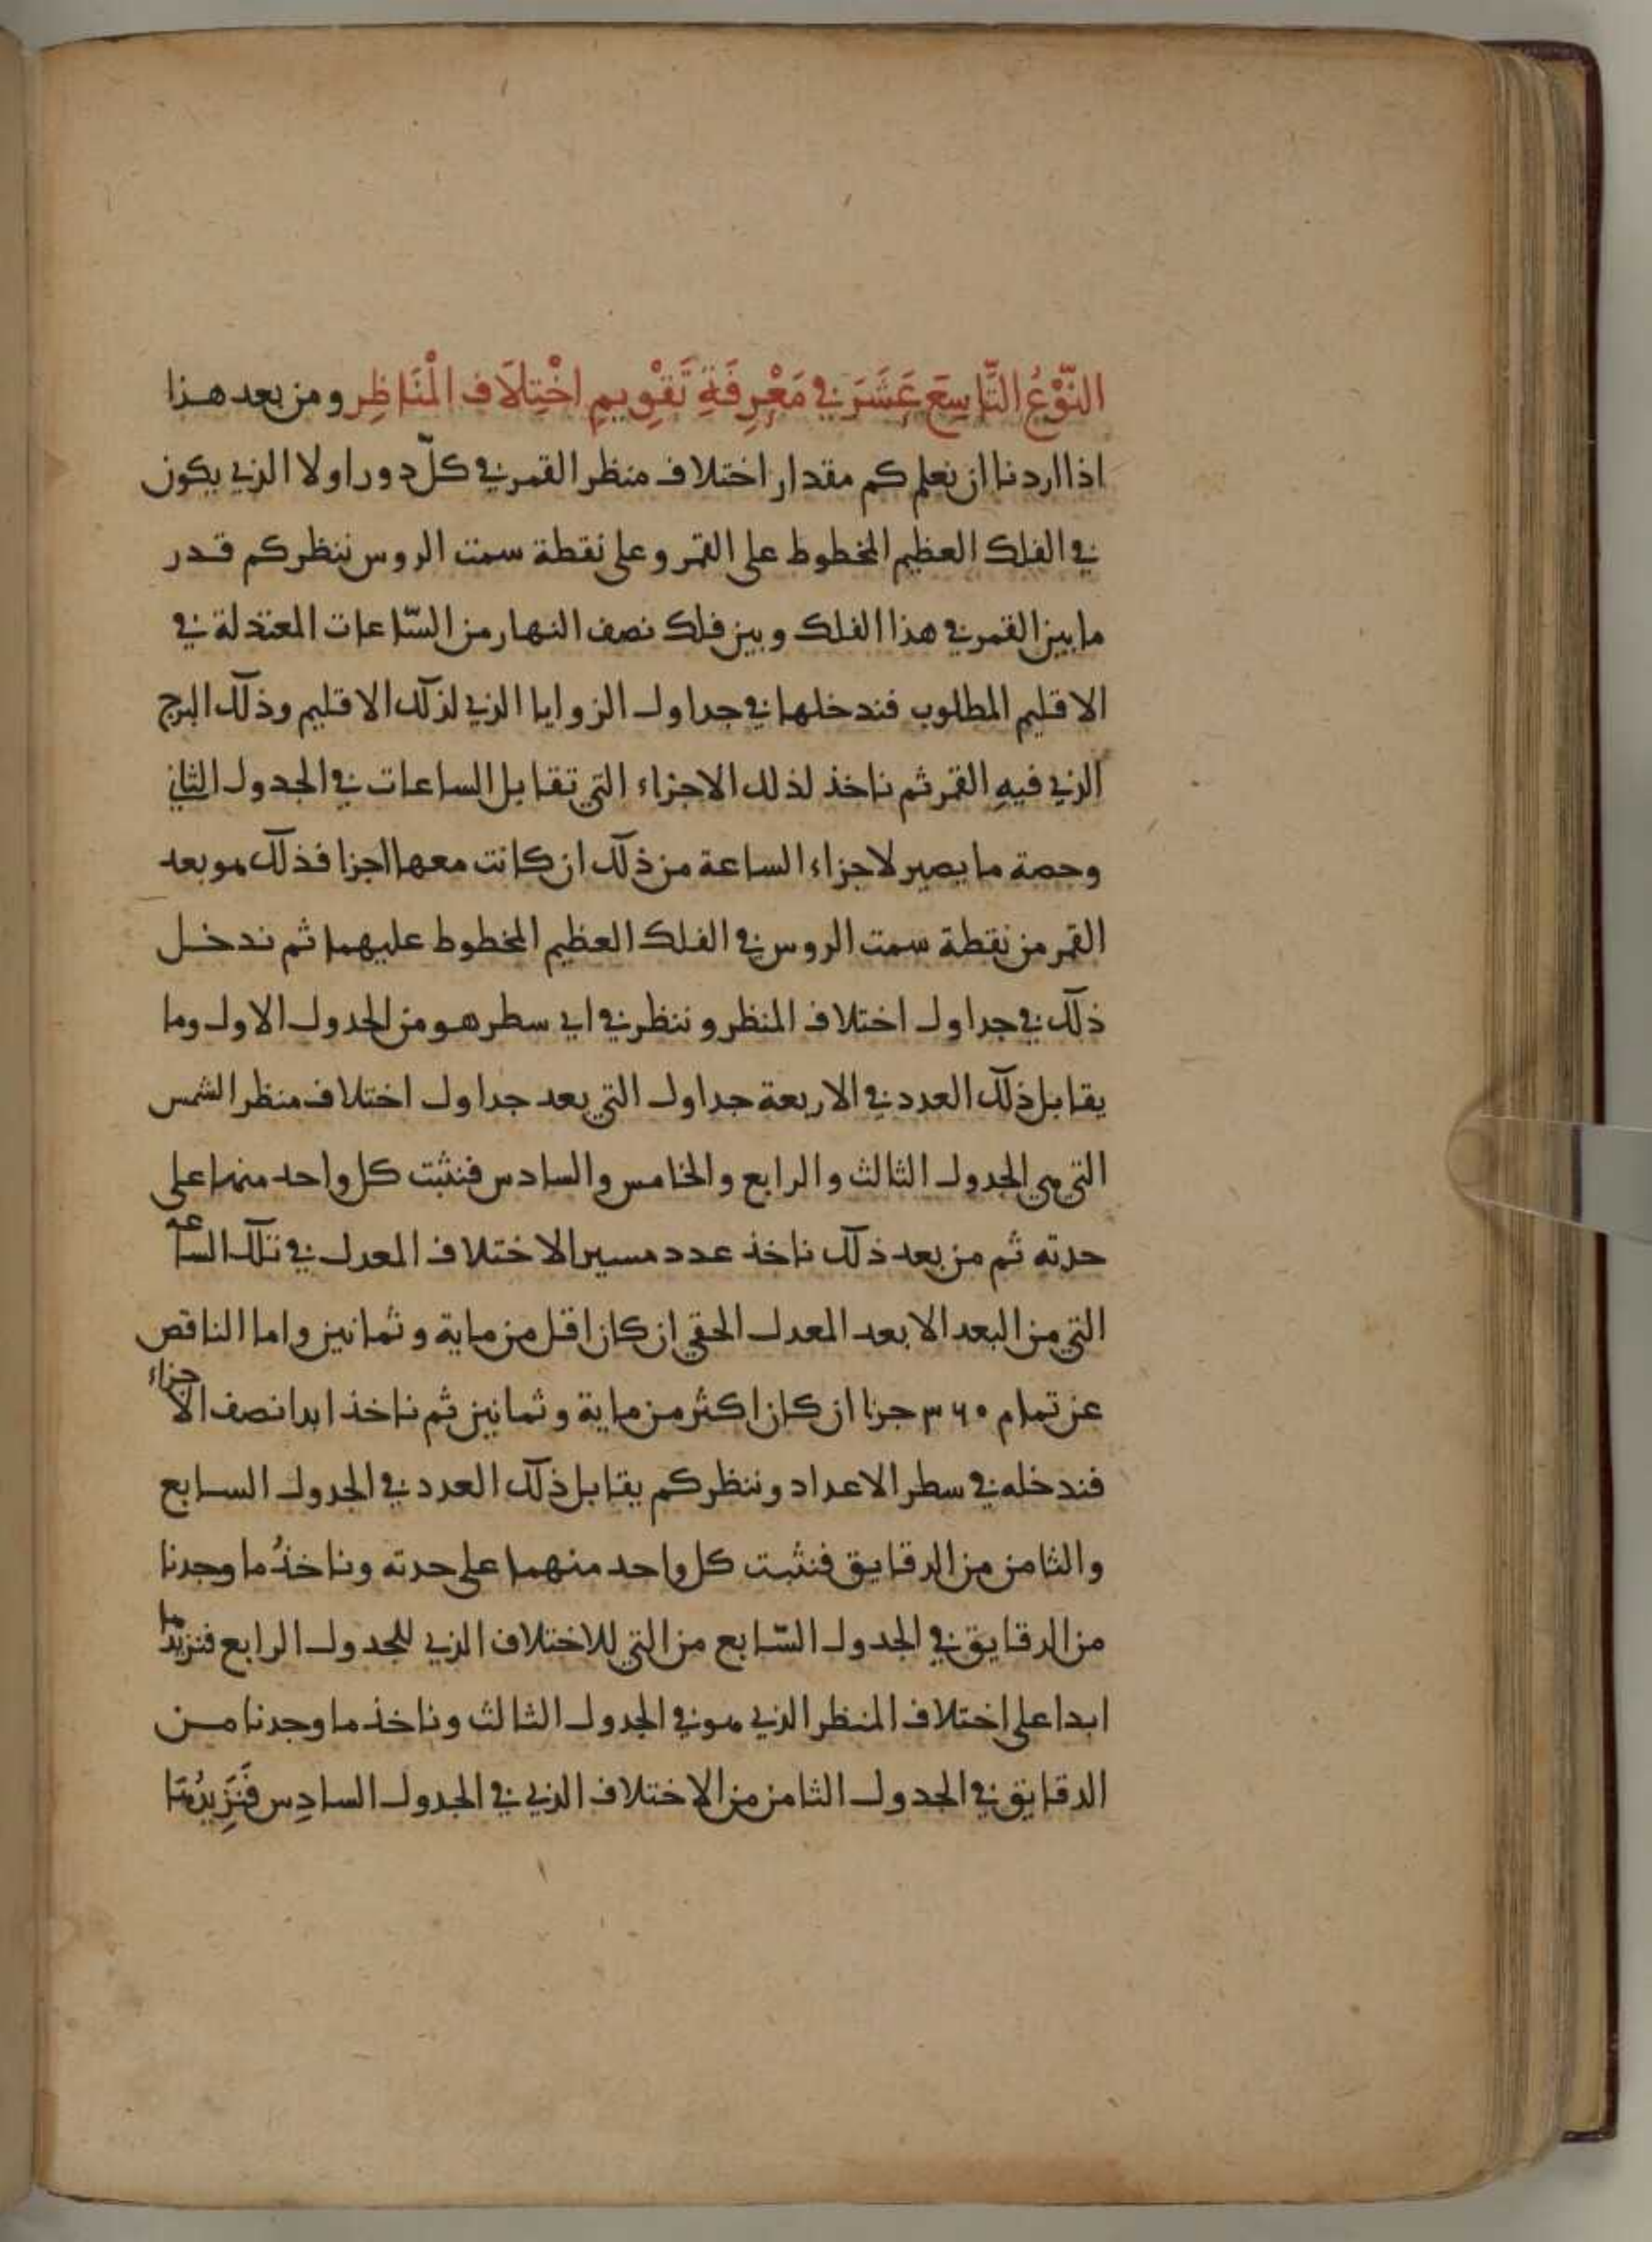 النَّوْعُ التَّاسِعَ عَشَرَ في مَعْرِفَةِ تَقْوِيمِ اخْتِلَافِ الْمَنَاظِرِ ومن بعد هذا
اذا اردنا ان نعلم كم مقدار اختلاف منظر القمر في كلّ دور اولا الذي يكون
في الفلك العظيم المخطوط على القمر وعلى نقطة سمت الروس ننظر كم قدر
ما بين القمر في هذا الفلك وبين فلك نصف النهار من السّاعات المعتدلة في
الاقليم المطلوب فندخلها في جداول الزوايا الذي لذلك الاقليم وذلك البرج
الذي فيهِ القمر ثم ناخذ لذلك الاجزاء التي تقابل الساعات في الجدول الثاني
وحصة ما يصير لاجزاء الساعة من ذلك ان كانت معها اجزا فذلك هو بعد
القمر من نقطة سمت الروس في الفلك العظيم المخطوط عليهما ثم ندخل
ذلك في جداول اختلاف المنظر وننظر في اي سطر هو من الجدول الاول وما
يقابل ذلك العدد في الاربعة جداول التي بعد جداول اختلاف منظر الشمس
التي هي الجدول الثالث والرابع والخامس والسادس فنثبت كل واحد منها على
حدته ثم من بعد ذلك ناخذ عدد مسير الاختلاف المعدل في تلك الساعة
التي من البعد الابعد المعدل الحقي ان كان اقل من ماية وثمانين واما الناقص
عن تمام ٣٦٠ جزا ان كان اكثر من ماية وثمانين ثم ناخذ ابدا نصف الاجزاء
فندخله في سطر الاعداد وننظر كم يقابل ذلك العدد في الجدول السابع
والثامن من الدقايق فنثبت كل واحد منهما على حدته وناخذُ ما وجدنا
من الدقايق في الجدول السّابع من التي للاختلاف الذي للجدول الرابع فنزيدها
ابدا على اختلاف المنظر الذي هو في الجدول الثالث وناخذ ما وجدنا من
الدقايق في الجدول الثامن من الاختلاف الذي في الجدول السادِس فَنَزِيدُهَا